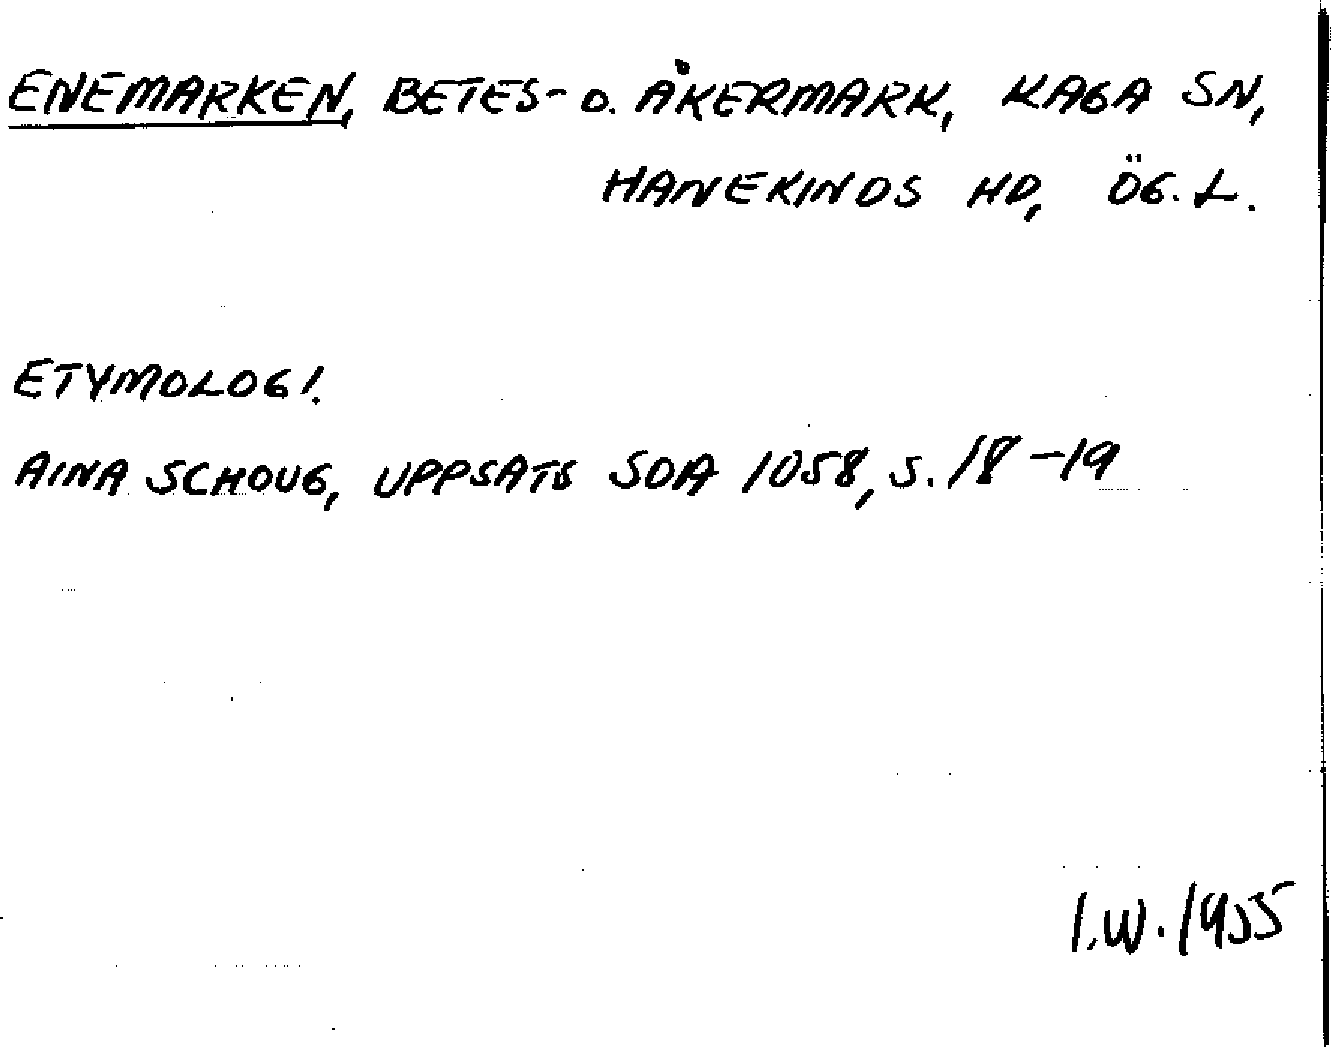 ENEMARKEN, BETES- O. ÅKERMARK, KAGA SN,
HANEKINDS HD, ÖG. L.
ETYMOLOGI.
AINA SCHOUG, UPPSATS SOA 1058, S. 18-19
I.W. 1955